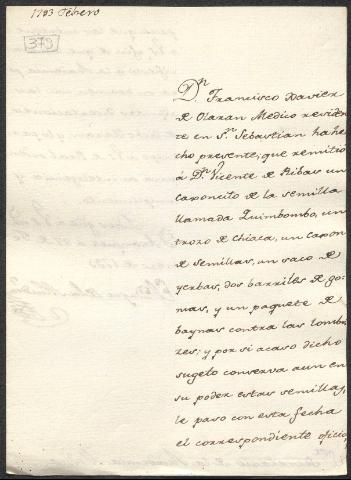 1793 Febrero
373
Dn Francisco Xavier
de Olazan Medico residen
te en Sn Sebastian ha he
cho presente, que remitió
á Dn Vicente de Ribas un
caxoncito de la semilla
llamada Zuimbombo, un
trozo de Chiaca, un caxon
de semillas, un saco de
yerbas, dos barriles de go-
mas, y un paquete de
baynas contra las lombri
zes; y por si acaso dicho
sugeto conserva aun en
su poder estas semillas,
le paso con esta fecha
el correspondiente oficio,